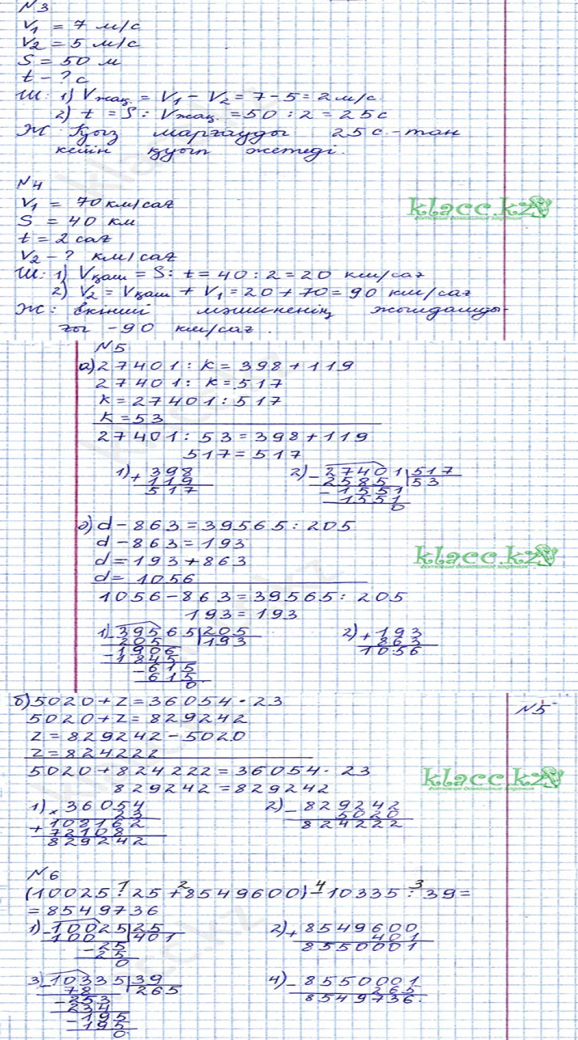 N3
V1 = 7 м/с
V2 = 5 м/с
S = 50 м
t - ? с
Ш: 1) Vжақ. = V1 - V2 = 7 - 5 = 2 м/с.
2) t = S : Vжақ. = 50 : 2 = 25 с
Ж: Қыз марғауды 25 с. - тан
кейін қуып жетеді.
N4
V1 = 70 км/сағ
S = 40 км
t = 2 сағ
V2 - ? км/сағ
klacc.kz
Ш: 1) Vқаш = S : t = 40 : 2 = 20 км/сағ
2) V2 = Vқаш + V1 = 20 + 70 = 90 км/сағ
Ж: Екінші мәшиненің жылдамды-
ғы - 90 км/сағ.
N5
а) 27401 : k = 398 + 119
27401 : k = 517
k = 27401 : 517
k = 53
27401 : 53 = 398 + 119
517 = 517
1) + 398 2) - 27401 | 517
119 2585 | 53
517 - 1551
1551
0
д) d - 863 = 39565 : 205
d - 863 = 193
d = 193 + 863
d = 1056
klacc.kz
1056 - 863 = 39565 : 205
193 = 193
1) - 39565 | 205 2) + 193
205 | 193 863
- 1906 1056
1845
- 615
615
0
б) 5020 + z = 36054 · 23 N5
5020 + z = 829242
z = 829242 - 5020
z = 824222
5020 + 824222 = 36054 · 23
829242 = 829242
klacc.kz
1) × 36054 2) - 829242
23 5020
+ 108162 824222
72108
829242
N6
1 2 4 3
(10025 : 25 + 8549600) - 10335 : 39 =
= 8549736
1) - 10025 | 25 2) + 8549600
100 | 401 401
- 25 8550001
25
0
3) - 10335 | 39 4) - 8550001
78 | 265 265
- 253 8549736.
234
- 195
195
0